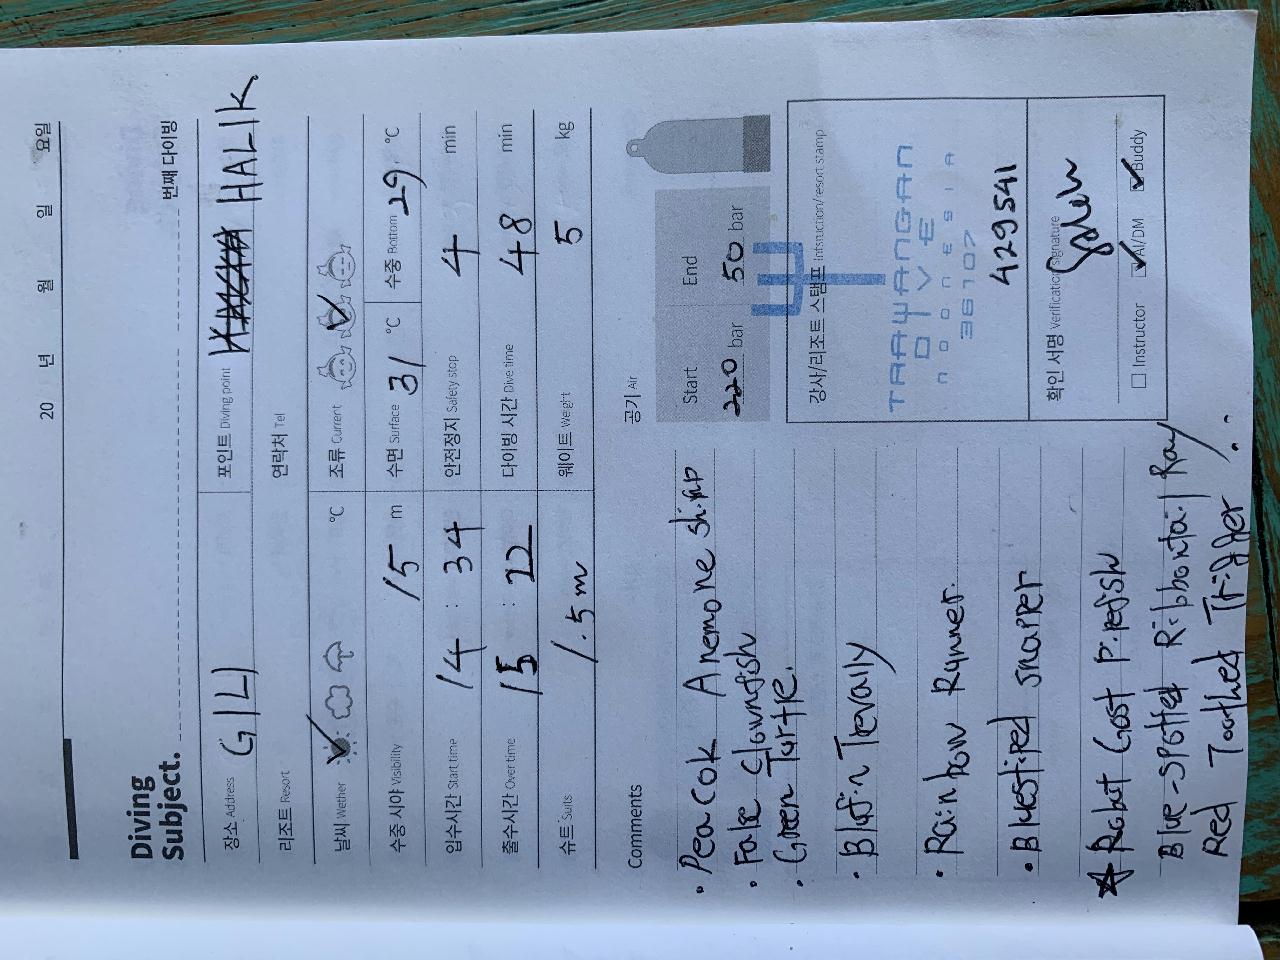 20 년 월 일 요일
Diving
Subject. 번째 다이빙
장소 Address GILI 포인트 Diving point HALIK
리조트 Resort 연락처 Tel
날씨 Wether °C 조류 Current
수중 시야 Visibility 15 m 수면 Surface 31 °C 수중 Bottom 29 °C
입수시간 Start time 14 : 34 안전정지 Safety stop 4 min
출수시간 Over time 15 : 22 다이빙 시간 Dive time 48 min
슈트 Suits 1.5m 웨이트 Weight 5 kg
Comments
• Pea Cok Anemone shimp
• False Clownfish
• Green Turtle.
• Blufin Trevally
• Rainbow Runner.
• Bluestriped snapper
☆ Robust Gost Pipefish
Blue-spotted Ribbontail Ray
Red Toothed Trigger
공기 Air
Start End
220 bar 50 bar
강사/리조트 스탬프 Intsruction/resort stamp
TRAWANGAN
DIVE
INDONESIA
36107
429541
확인 서명 Verification signature
Instructor AI/DM Buddy